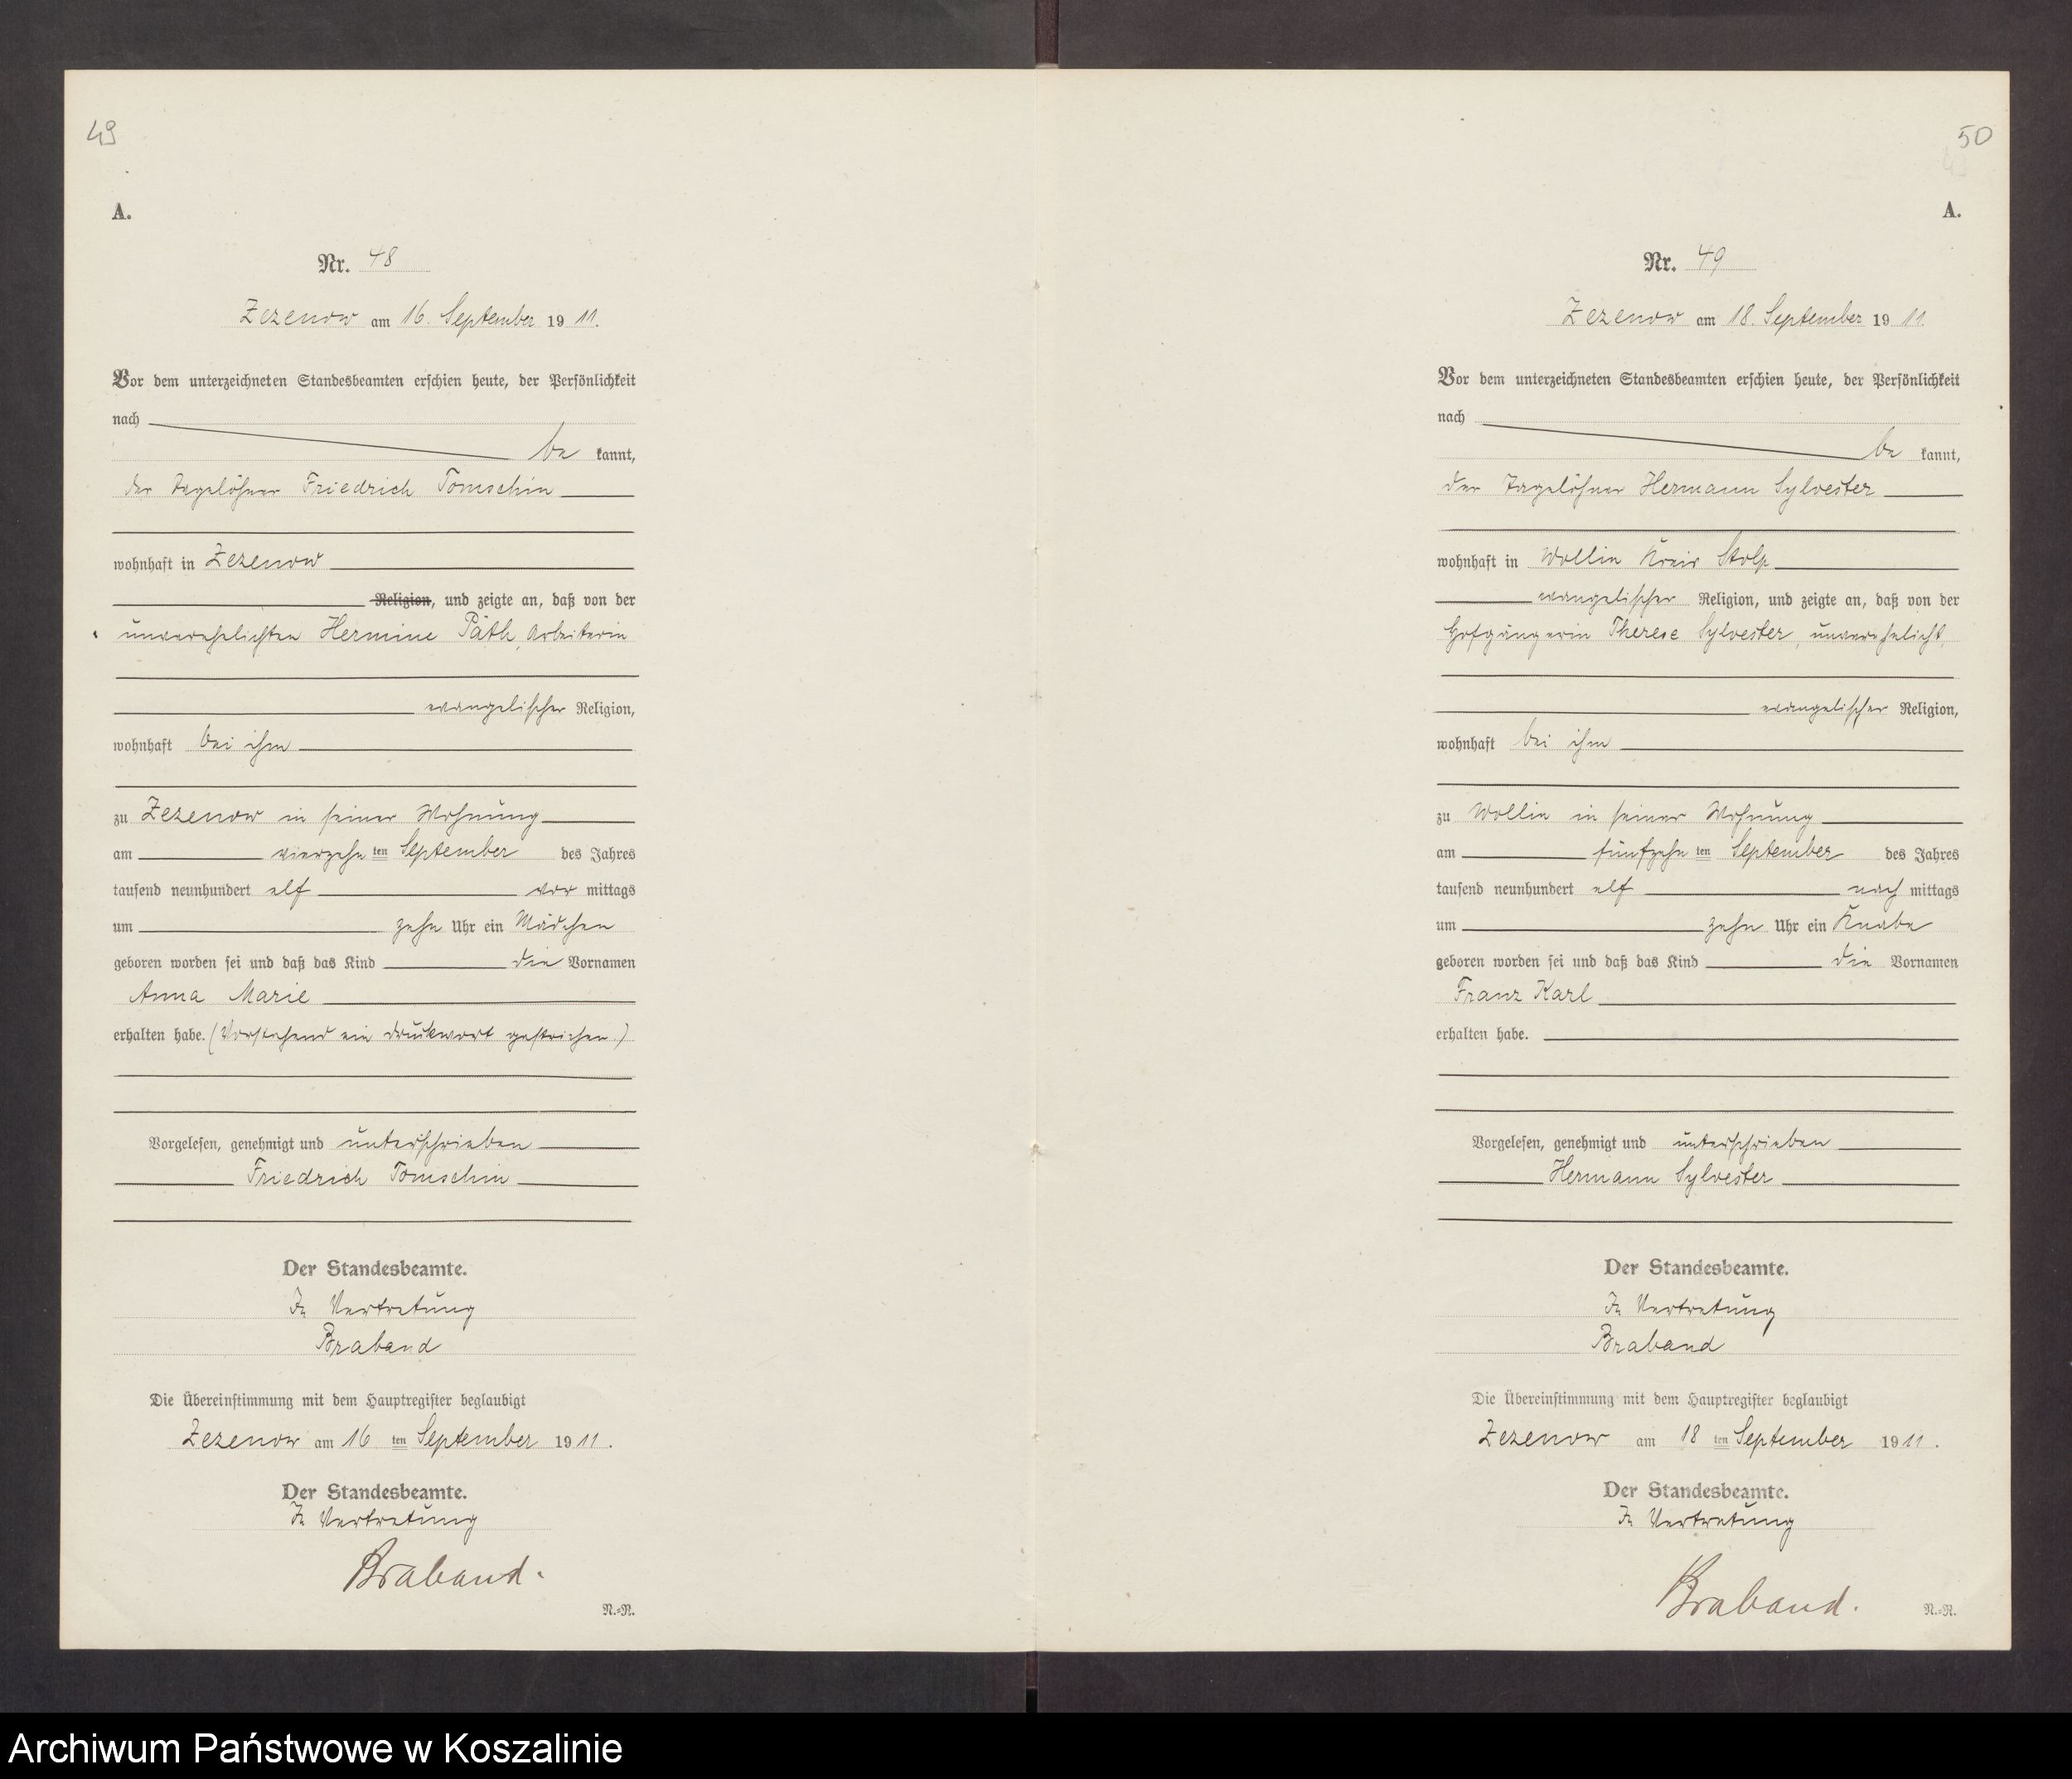 49
A.
Nr. 48
Zezenow am 16. September 1911.
Vor dem unterzeichneten Standesbeamten erschien heute, der Persönlichkeit
nach
be kannt,
der Tagelöhner Friedrich Tomschin
wohnhaft in Zezenow
Religion, und zeigte an, daß von der
unverehelichten Hermine Päth, Arbeiterin
evangelischer Religion,
wohnhaft bei ihm
zu Zezenow in seiner Wohnung
am vierzehn ten September des Jahres
tausend neunhundert elf vor mittags
um zehn Uhr ein Mädchen
geboren worden sei und daß das Kind die Vornamen
Anna Marie
erhalten habe. (Vorstehend ein Druckwort gestrichen.)
Vorgelesen, genehmigt und unterschrieben
Friedrich Tomschin
Der Standesbeamte.
In Vertretung
Braband
Die Übereinstimmung mit dem Hauptregister beglaubigt
Zezenow am 16 ten September 1911.
Der Standesbeamte.
In Vertretung
Braband.
N.=R.
50
A.
Nr. 49
Zezenow am 18. September 1911.
Vor dem unterzeichneten Standesbeamten erschien heute, der Persönlichkeit
nach
be kannt,
der Tagelöhner Hermann Sylvester
wohnhaft in Wollin Kreis Stolp
evangelischer Religion, und zeigte an, daß von der
Hofgängerin Therese Sylvester, unverehelicht,
evangelischer Religion,
wohnhaft bei ihm
zu Wollin in seiner Wohnung
am fünfzehn ten September des Jahres
tausend neunhundert elf nach mittags
um zehn Uhr ein Knabe
geboren worden sei und daß das Kind die Vornamen
Franz Karl
erhalten habe.
Vorgelesen, genehmigt und unterschrieben
Hermann Sylvester
Der Standesbeamte.
In Vertretung
Braband
Die Übereinstimmung mit dem Hauptregister beglaubigt
Zezenow am 18 ten September 1911.
Der Standesbeamte.
In Vertretung
Braband.
N.=R.
Archiwum Państwowe w Koszalinie